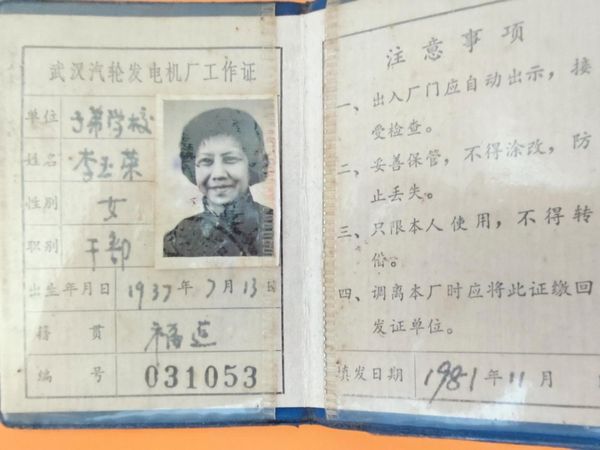 武汉汽轮发电机厂工作证
单位 子弟学校
姓名 李玉荣
性别 女
职别 干部
出生年月日 1937年7月13日
籍贯 福建
编号 031053
注意事项
一、出入厂门应自动出示，接
受检查。
二、妥善保管，不得涂改，防
止丢失。
三、只限本人使用，不得转
借。
四、调离本厂时应将此证缴回
发证单位。
填发日期 1981年11月